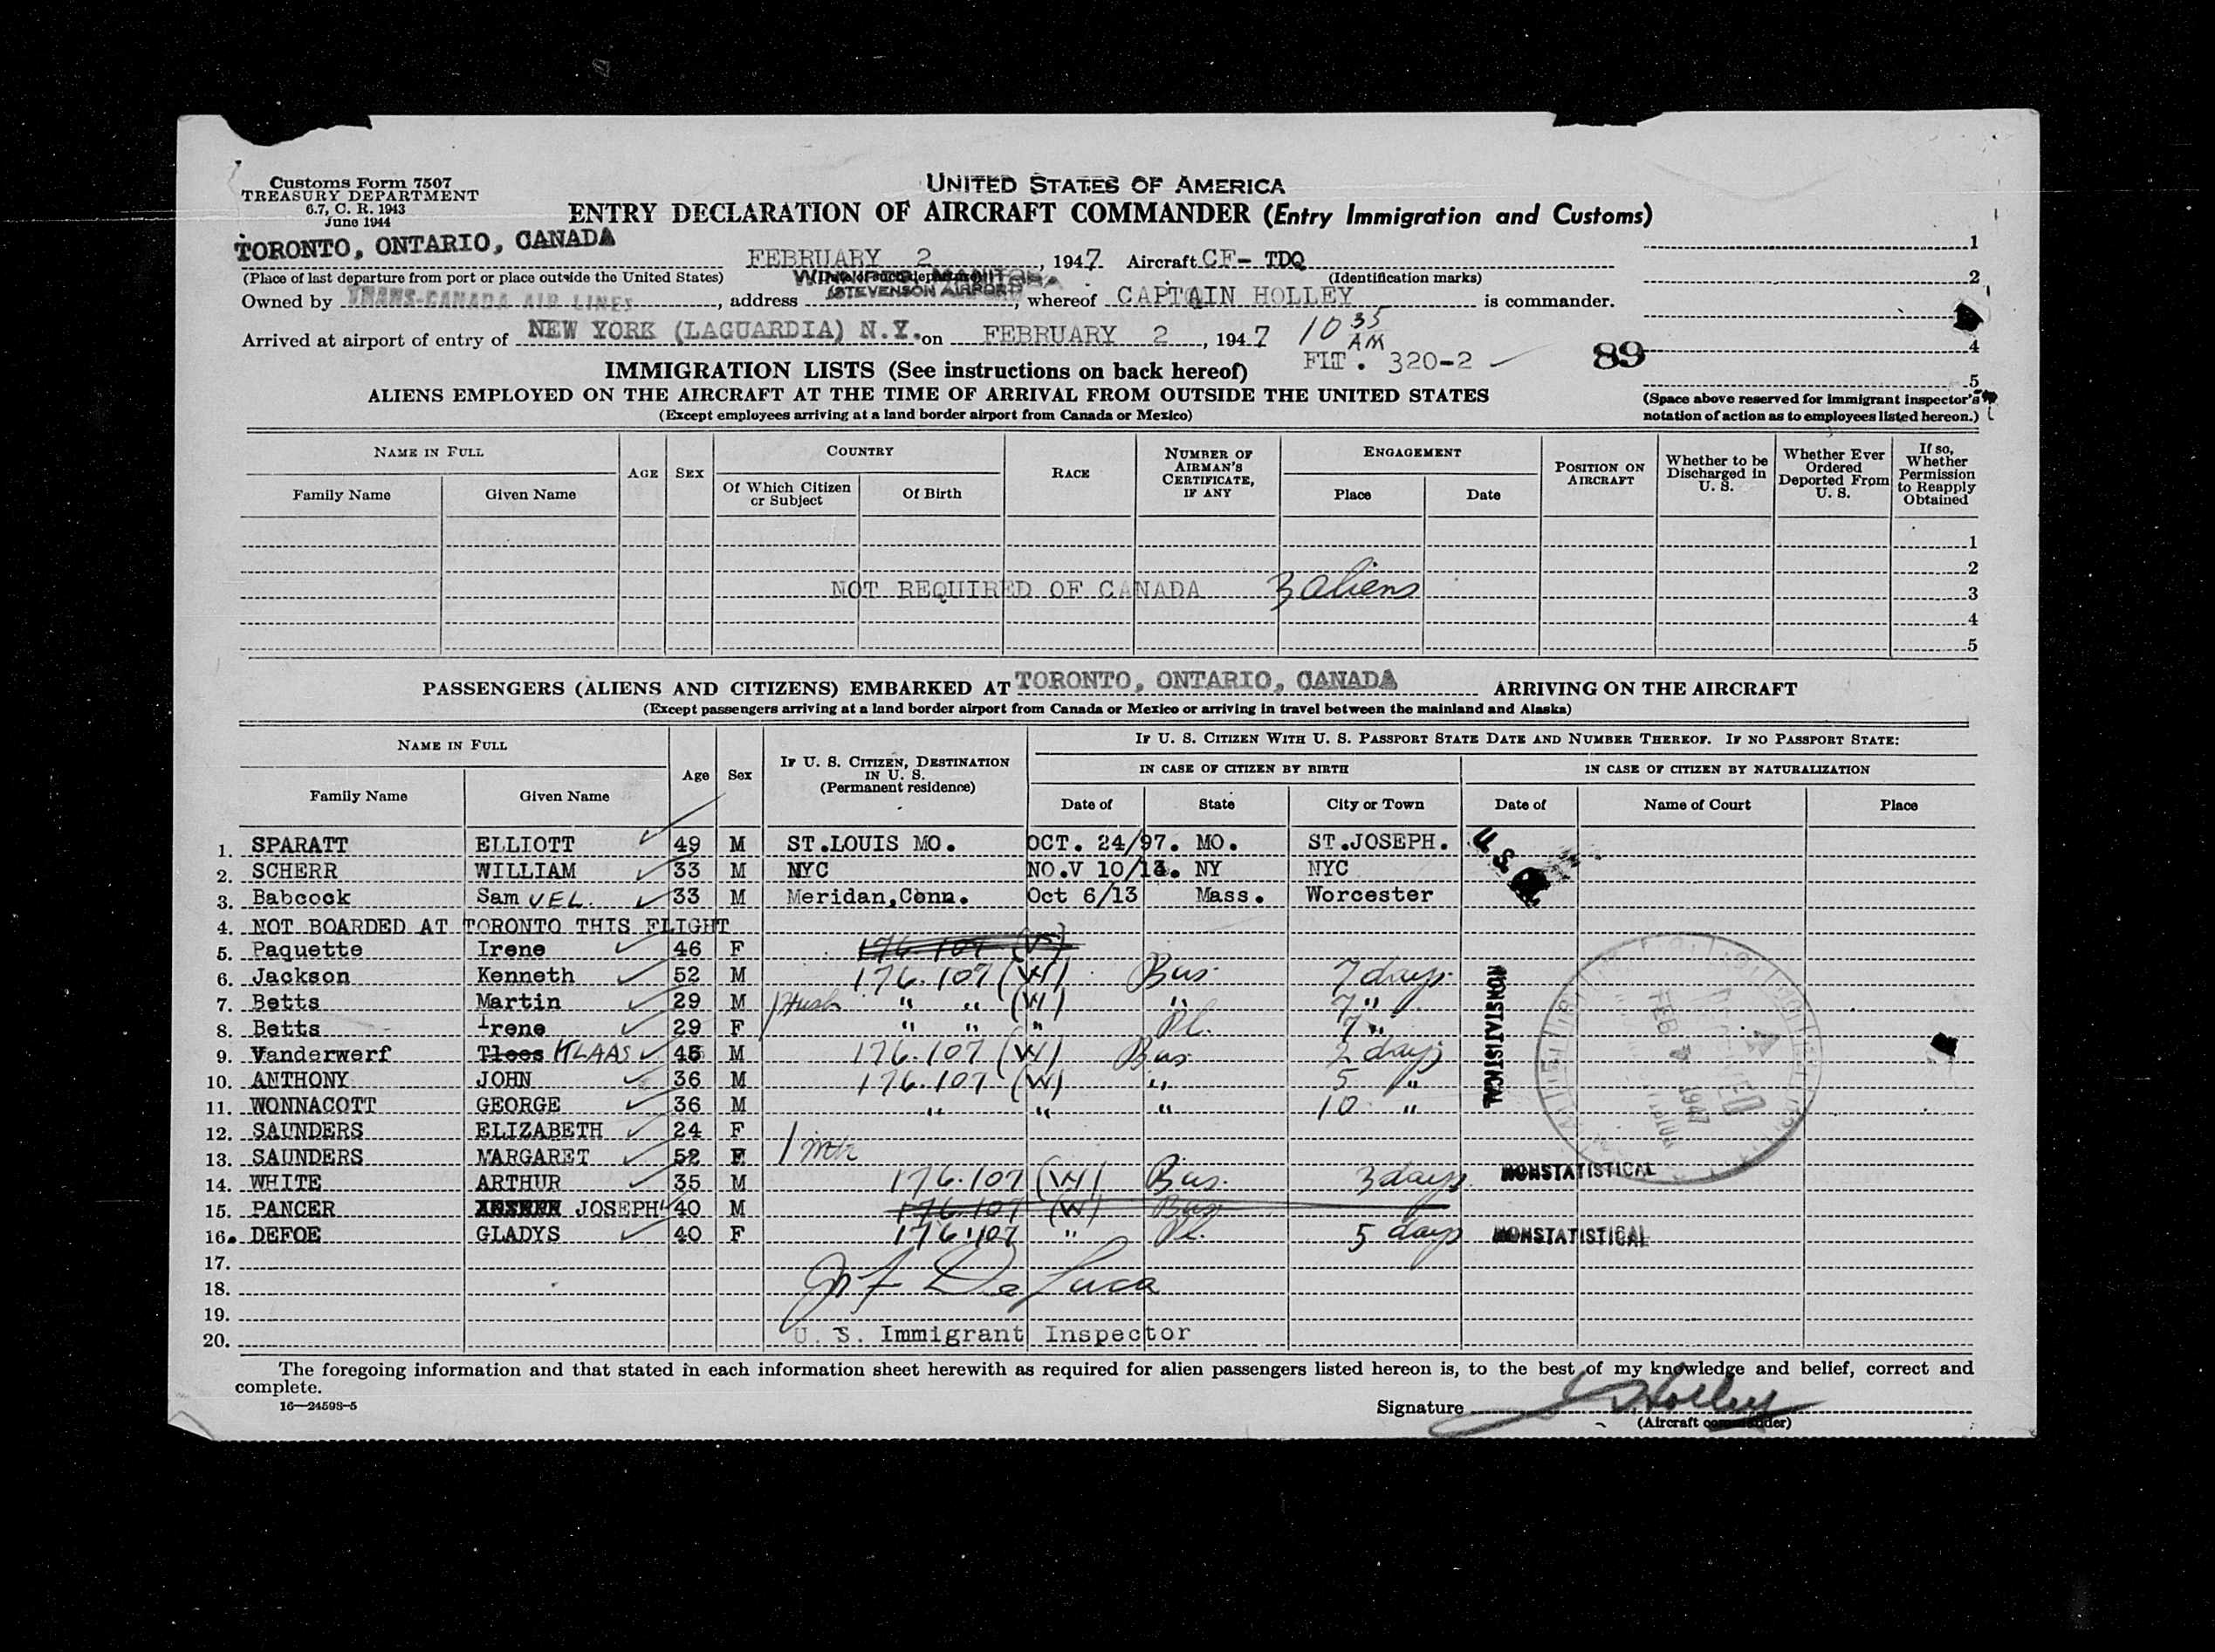 Customs Form 7507
TREASURY DEPARTMENT
6.7, C. R. 1943
June 1944
UNITED STATES OF AMERICA
ENTRY DECLARATION OF AIRCRAFT COMMANDER (Entry Immigration and Customs)
TORONTO, ONTARIO, CANADA FEBRUARY 2, 1947 Aircraft CF- TDQ 1
(Place of last departure from port or place outside the United States) (Identification marks) 2
WINNIPEG, MANITOBA
(STEVENSON AIRPORT)
Owned by TRANS-CANADA AIR LINES, address, whereof CAPTAIN HOLLEY is commander.
Arrived at airport of entry of NEW YORK (LAGUARDIA) N.Y. on FEBRUARY 2, 1947 10 35 AM 4
IMMIGRATION LISTS (See instructions on back hereof) FLT. 320-2 89 5
ALIENS EMPLOYED ON THE AIRCRAFT AT THE TIME OF ARRIVAL FROM OUTSIDE THE UNITED STATES
(Except employees arriving at a land border airport from Canada or Mexico)
(Space above reserved for immigrant inspector's notation of action as to employees listed hereon.)
NAME IN FULL
Family Name Given Name
AGE SEX
COUNTRY
Of Which Citizen or Subject Of Birth
RACE
NUMBER OF AIRMAN'S CERTIFICATE, IF ANY
ENGAGEMENT
Place Date
POSITION ON AIRCRAFT
Whether to be Discharged in U. S.
Whether Ever Ordered Deported From U. S.
If so, Whether Permission to Reapply Obtained
1
2
NOT REQUIRED OF CANADA 3 aliens 3
4
5
PASSENGERS (ALIENS AND CITIZENS) EMBARKED AT TORONTO, ONTARIO, CANADA ARRIVING ON THE AIRCRAFT
(Except passengers arriving at a land border airport from Canada or Mexico or arriving in travel between the mainland and Alaska)
NAME IN FULL
Family Name Given Name
Age Sex
IF U. S. CITIZEN, DESTINATION IN U. S. (Permanent residence)
IF U. S. CITIZEN WITH U. S. PASSPORT STATE DATE AND NUMBER THEREOF. IF NO PASSPORT STATE:
IN CASE OF CITIZEN BY BIRTH IN CASE OF CITIZEN BY NATURALIZATION
Date of State City or Town Date of Name of Court Place
1. SPARATT ELLIOTT 49 M ST.LOUIS MO. OCT. 24/97. MO. ST.JOSEPH. U.S.
2. SCHERR WILLIAM 33 M NYC NO.V 10/13. NY NYC
3. Babcock Sam UEL. 33 M Meridan,Conn. Oct 6/13 Mass. Worcester
4. NOT BOARDED AT TORONTO THIS FLIGHT
5. Paquette Irene 46 F 176-107
6. Jackson Kenneth 52 M 176.107 (W) Bus. 7 days
7. Betts Martin 29 M Husb " " (W) " 7 "
8. Betts Irene 29 F " " " Pl. 7 "
9. Vanderwerf Tloes KLAAS 45 M 176.107 (W) Bus 2 days
10. ANTHONY JOHN 36 M 176.107 (W) " 5 "
11. WONNACOTT GEORGE 36 M " " " 10 "
NONSTATISTICAL
RECEIVED FEB 4 1947
12. SAUNDERS ELIZABETH 24 F
13. SAUNDERS MARGARET 52 F
14. WHITE ARTHUR 35 M 176.107 (W) Bus. 3 days NONSTATISTICAL
15. PANCER JOSEPH 40 M 176.107 (W) Bus
16. DEFOE GLADYS 40 F 176.107 " Pl. 5 days NONSTATISTICAL
17.
18. De Luca
19.
20. U. S. Immigrant Inspector
The foregoing information and that stated in each information sheet herewith as required for alien passengers listed hereon is, to the best of my knowledge and belief, correct and
complete.
16—24598-5
Signature Holley
(Aircraft commander)